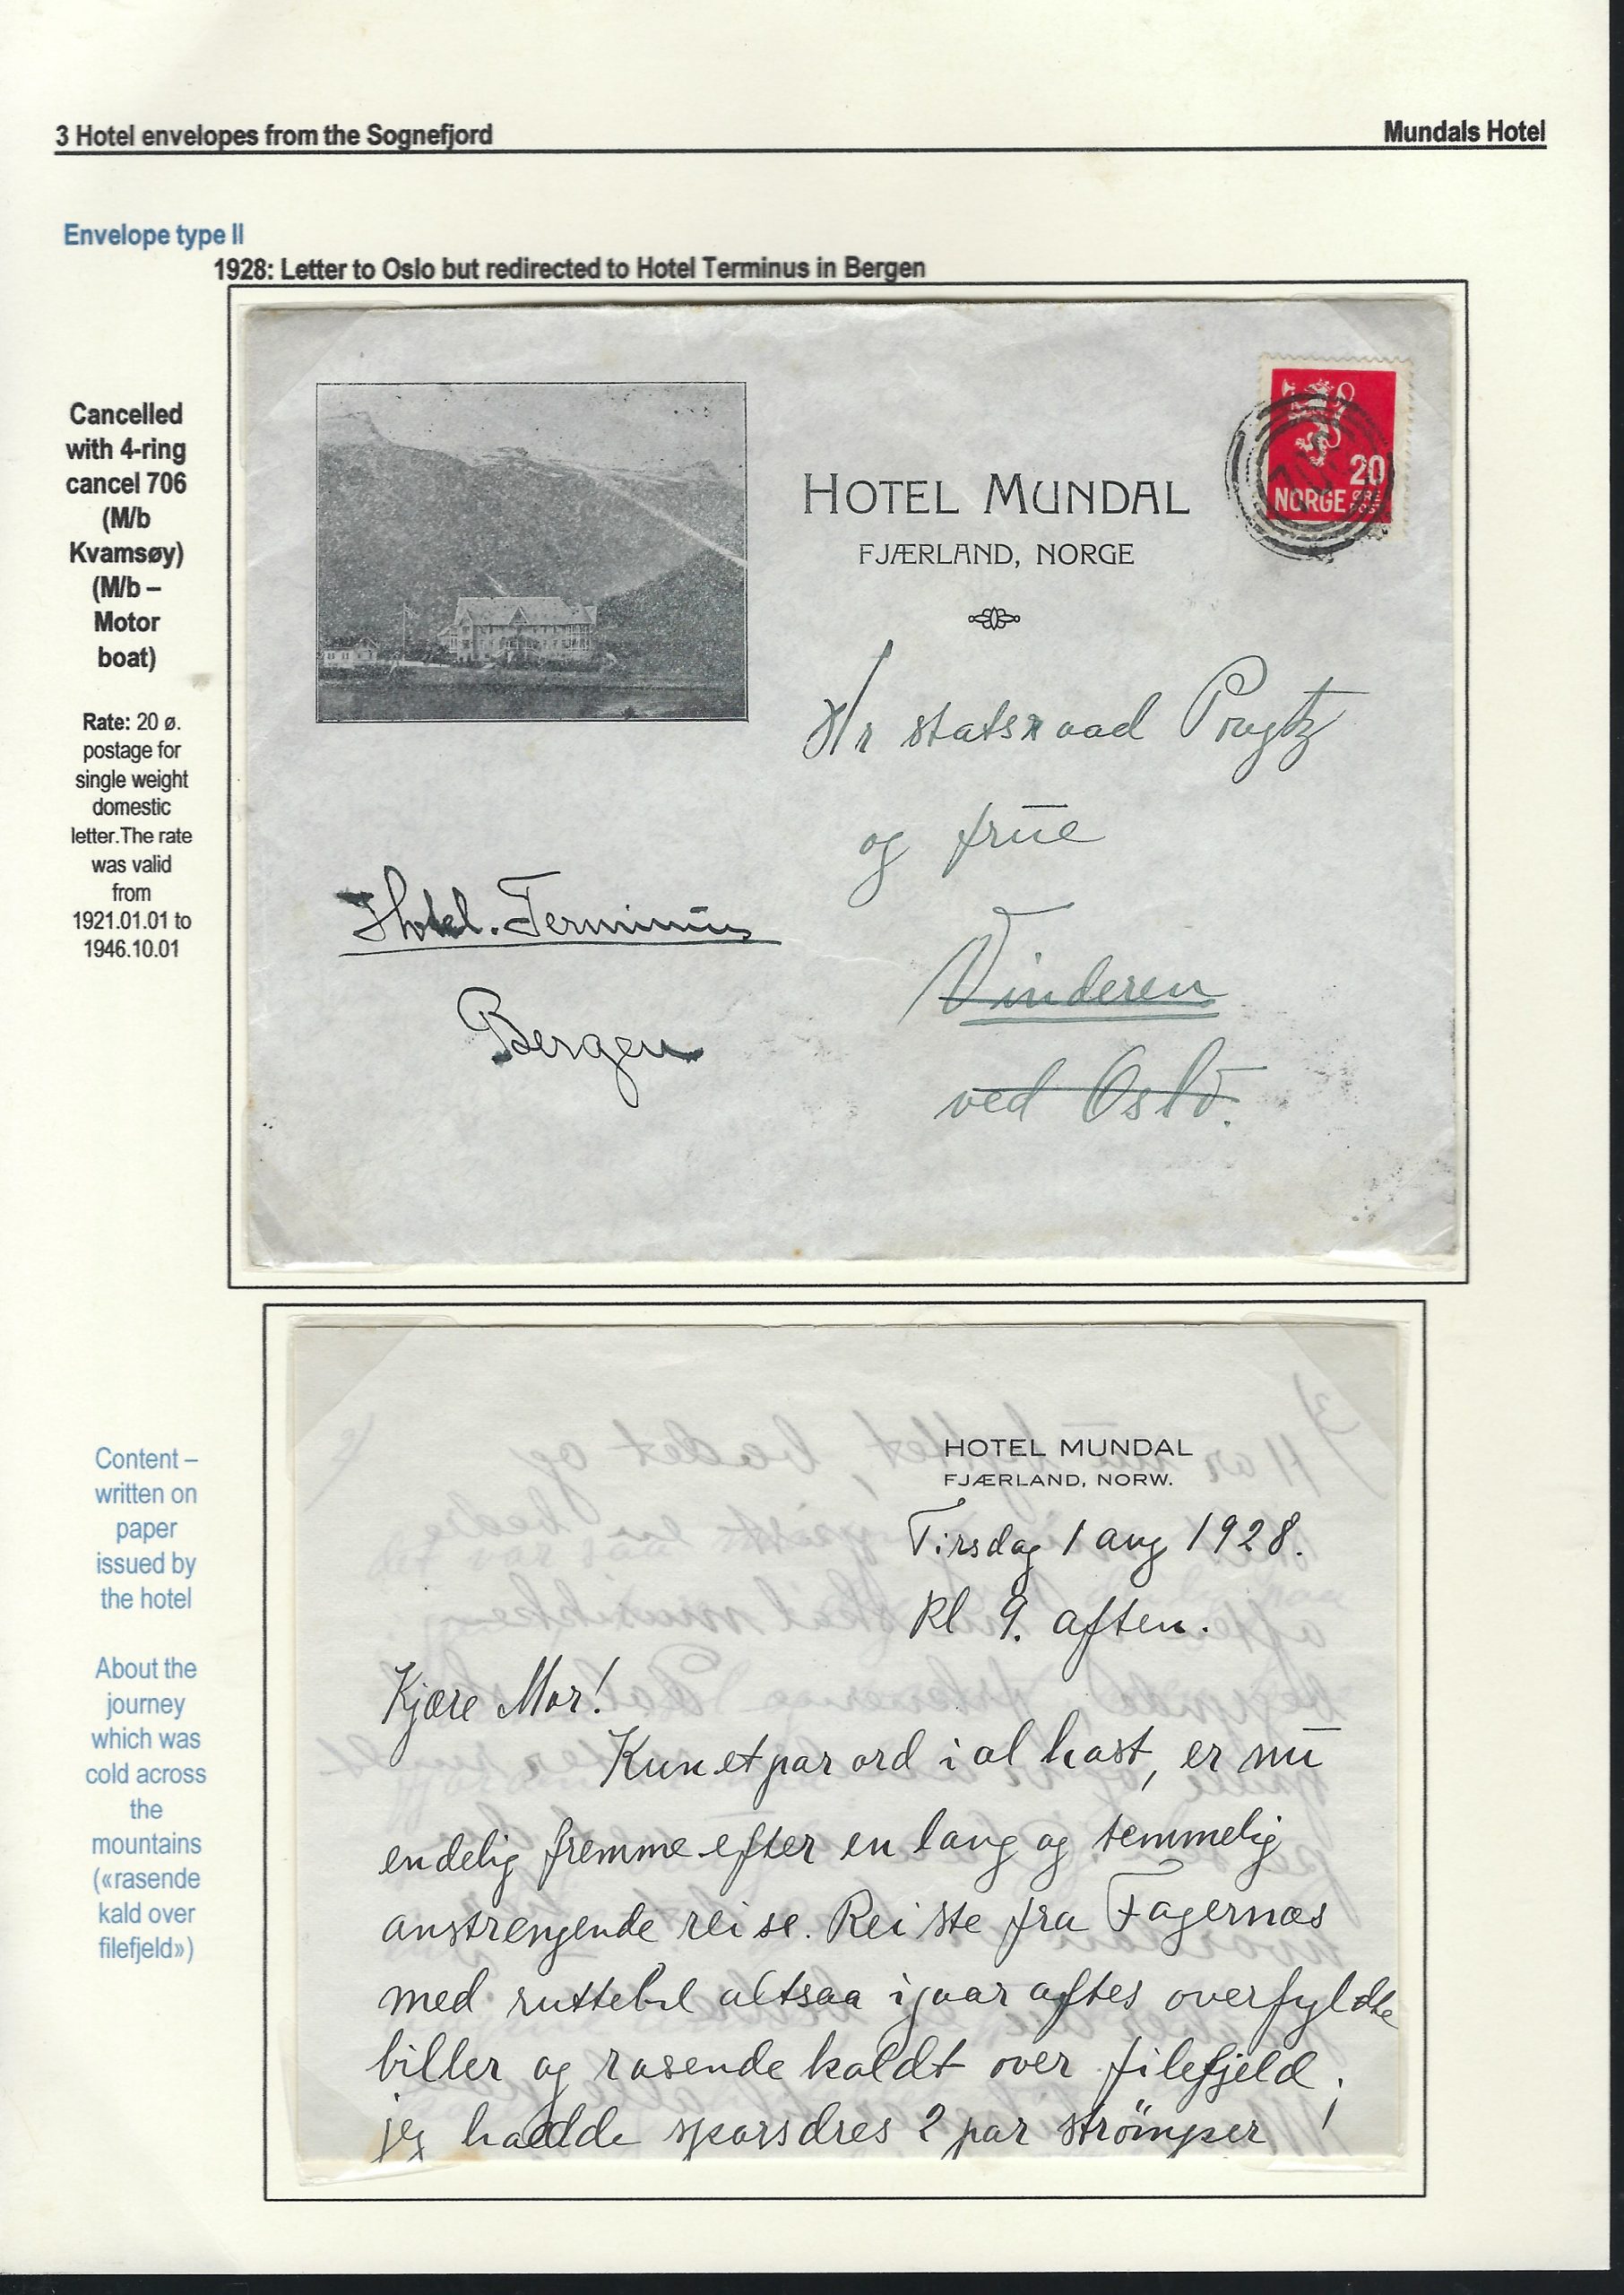 3 Hotel envelopes from the Sognefjord
Mundals Hotel
Envelope type II
1928: Letter to Oslo but redirected to Hotel Terminus in Bergen
Cancelled
with 4-ring
cancel 706
(M/b
Kvamsøy)
(M/b –
Motor
boat)
Rate: 20 ø.
postage for
single weight
domestic
letter.The rate
was valid
from
1921.01.01 to
1946.10.01
HOTEL MUNDAL
FJÆRLAND, NORGE
20
NORGE ØRE
POST
Hr statsraad
og frue
Vinderen
ved Oslo.
Hotel. Terminus
Bergen
Content –
written on
paper
issued by
the hotel
About the
journey
which was
cold across
the
mountains
(«rasende
kald over
filefjeld»)
HOTEL MUNDAL
FJÆRLAND, NORW.
Tirsdag 1 aug 1928.
Kl 9. aften.
Kjære Mor!
Kun et par ord i al hast, er nū
endelig fremme efter en lang og temmelig
anstrengende reise. Reiste fra Fagernæs
med ruttebil altsaa igaar aftes overfyldte
biller og rasende koldt over filefjeld;
jeg hadde 2 par strömper